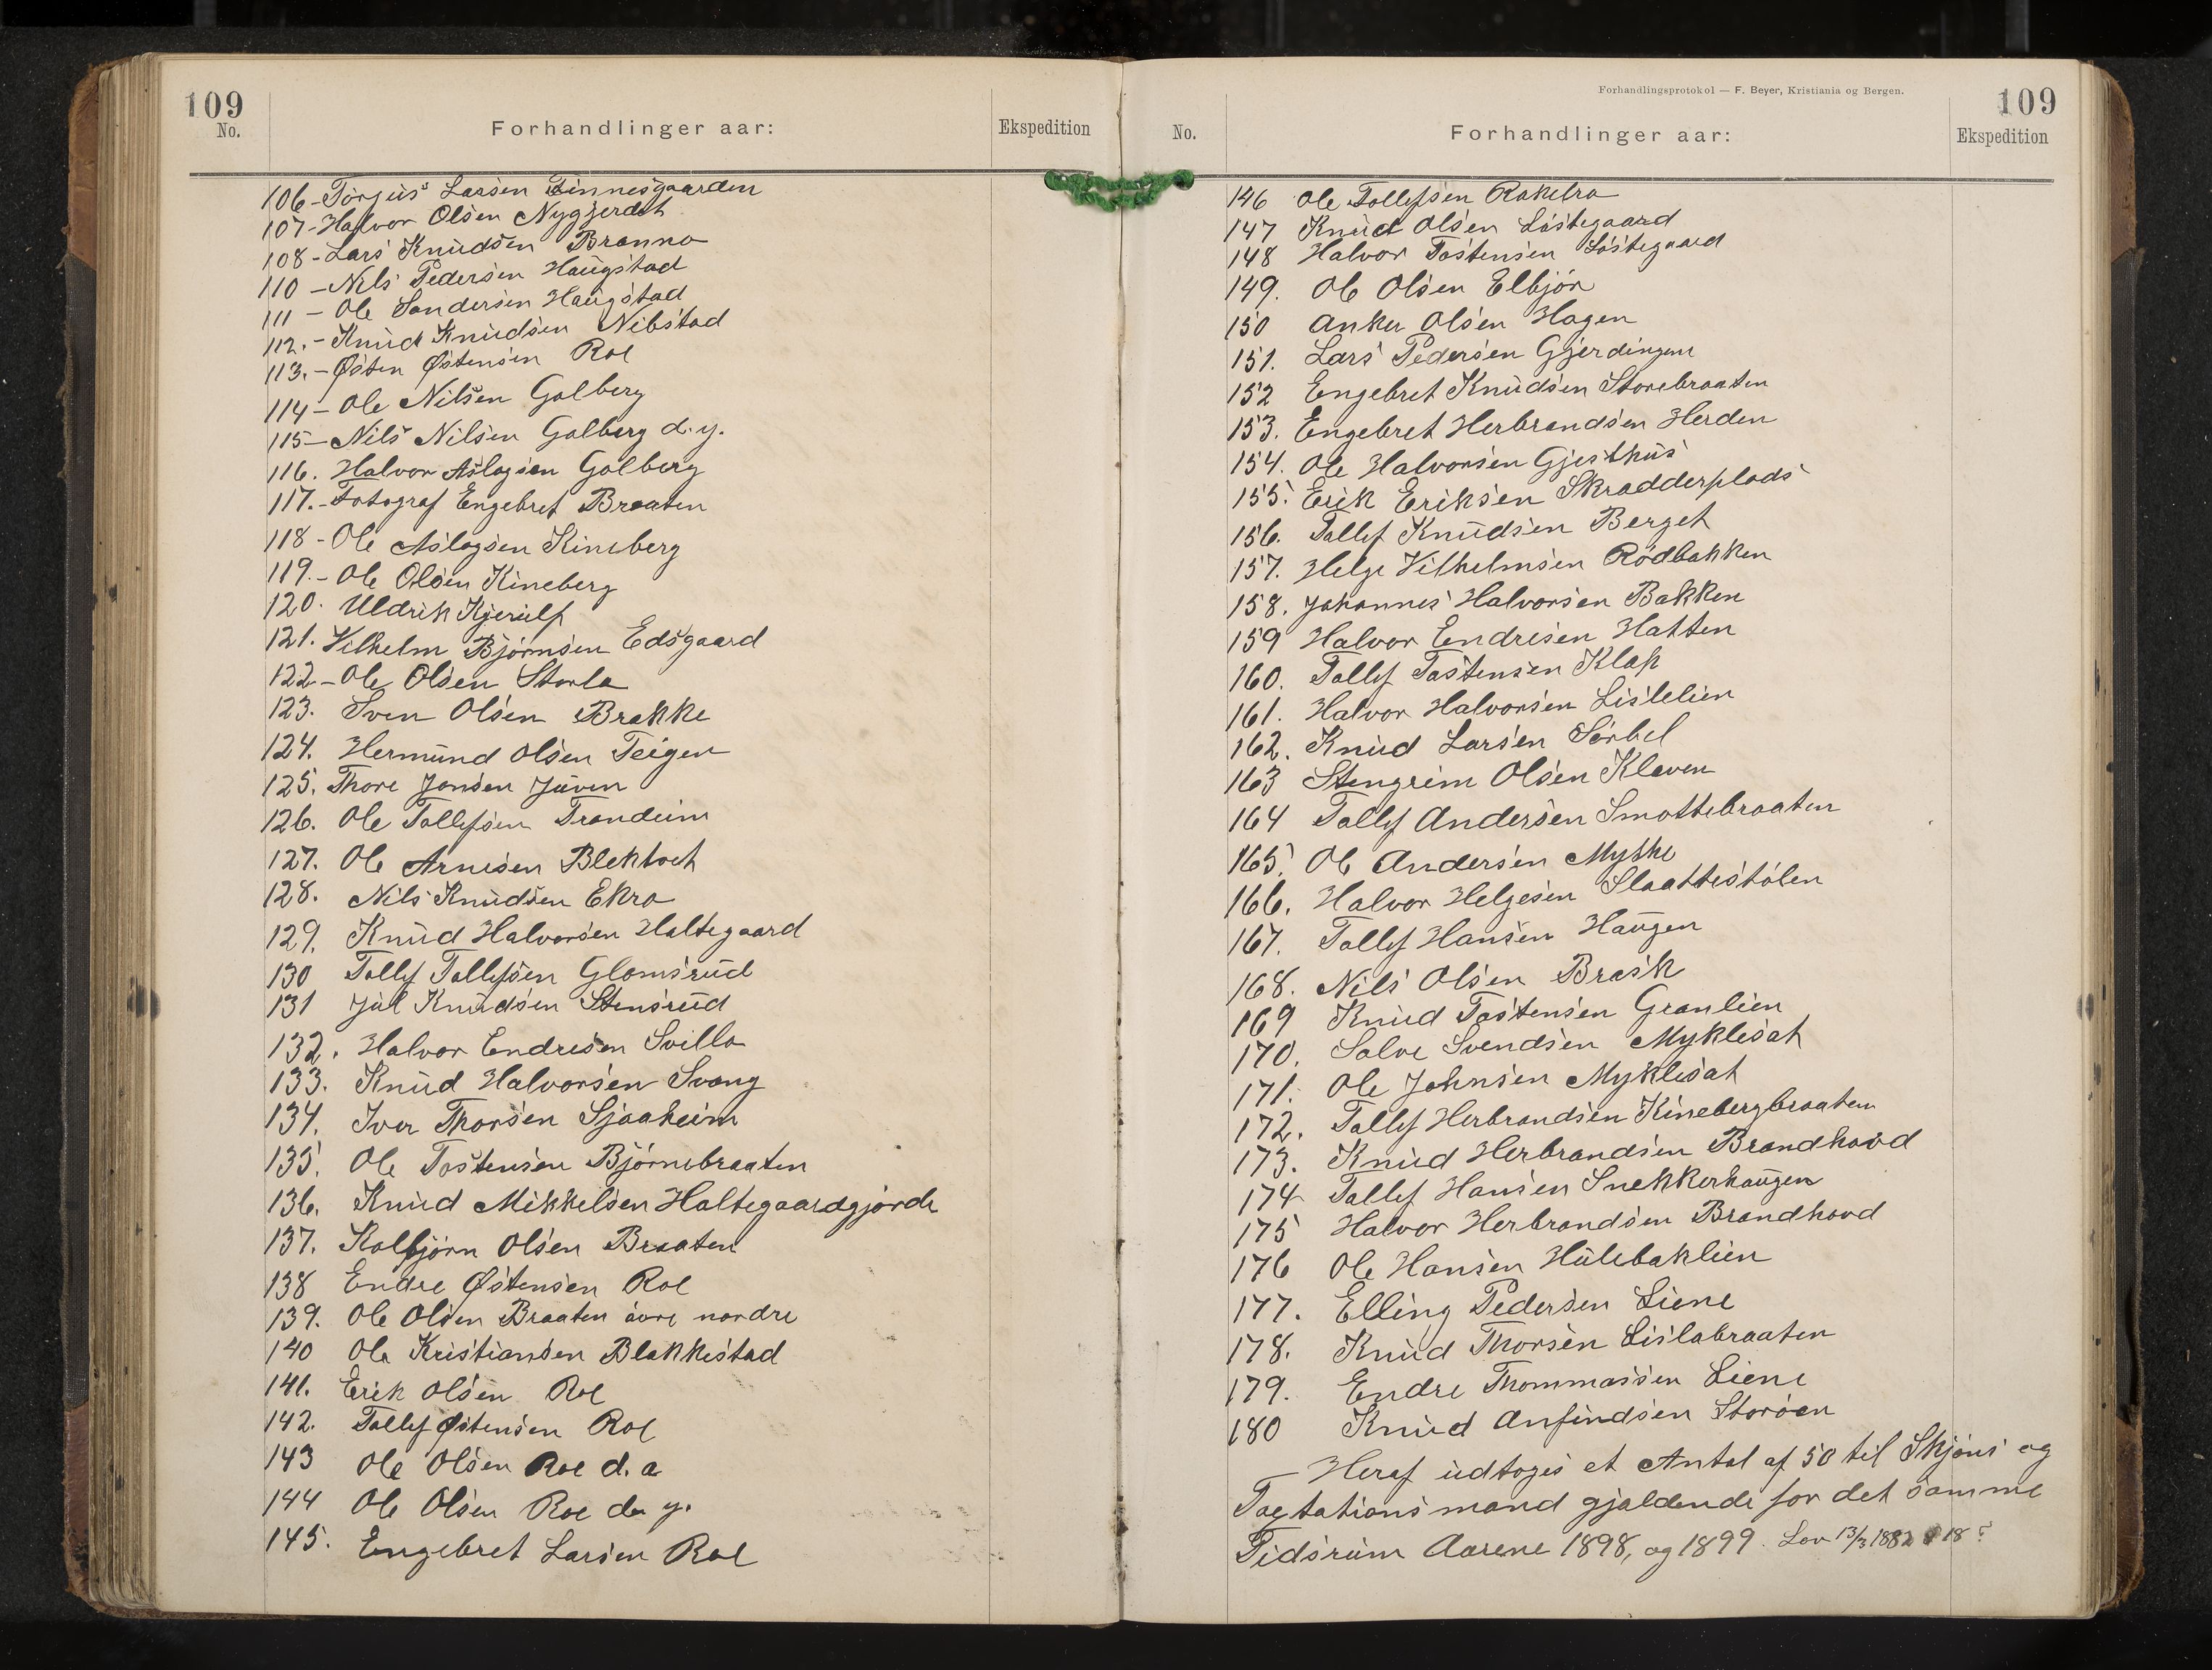 109
No.
Forhandlinger aar:
Ekspedition
106-Torjus Larsen Finnesgaarden
107-Halvor Olsen Nygjerdet
108-Lars Knudsen Branna
110-Nils Pedersen Haugstad
111-Ole Sandersen Haugstad
112.-Knud Knudsen Nibstad
113.-Østen Østensen Roe
114-Ole Nilsen Golberg
115-Nils Nilsen Golberg d.y.
116. Halvor Aslagsen Golberg
117.-Fotograf Engebret Braaten
118-Ole Aslagsen Kineberg
119.-Ole Olsen Kineberg
120. Uldrik Kjerulf
121. Vilhelm Bjørnsen Edsgaard
122-Ole Olsen Storla
123. Sven Olsen Brakke
124. Hermund Olsen Teigen
125. Thore Jonsen Juven
126. Ole Tollefsen Trondeim
127. Ole Arnesen Blektvet
128. Nils Knudsen Ekra
129. Knud Halvorsen Haltegaard
130 Tollef Tollefsen Glomsrud
131 Jul Knudsen Stensrud
132. Halvor Endresen Svilla
133. Knud Halvorsen Svang
134. Iver Thorsen Sjaaheim
135. Ole Tostensen Bjørnebraaten
136. Knud Mikkelsen Haltegaardgjorde
137. Kolbjørn Olsen Braaten
138 Endre Østensen Roe
139. Ole Olsen Braaten øvre nordre
140 Ole Kristiansen Blakkestad
141. Erik Olsen Roe
142. Tollef Østensen Roe
143 Ole Olsen Roe d. a
144 Ole Olsen Roe d. y.
145. Engebret Larsen Roe
Forhandlingsprotokol — F. Beyer, Kristiania og Bergen.
109
No.
Forhandlinger aar:
Ekspedition
146 Ole Tollefsen Rakelra
147 Knud Olsen Løstegaard
148 Halvor Tostensen Løstegaard
149. Ole Olsen Elbjør
150 Anker Olsen Hagen
151. Lars Pedersen Gjerdingen
152 Engebret Knudsen Storebraaten
153. Engebret Herbrandsen Herden
154. Ole Halvorsen Gjesthus
155. Erik Eriksen Skradderplads
156. Tollef Knudsen Berget
157. Helge Vilhelmsen Rødbakken
158. Johannes Halvorsen Bakken
159 Halvor Endresen Hatten
160. Tollef Tostensen Klep
161. Halvor Halvorsen Lislelien
162. Knud Larsen Sørbel
163 Stengrim Olsen Kleven
164 Tollef Andersen Smottebraaten
165. Ole Andersen Myhre
166. Halvor Helgesen Slaattestølen
167. Tollef Hansen Haugen
168. Nils Olsen Brask
169 Knud Tostensen Granlien
170. Salve Svendsen Myklesat
171. Ole Johnsen Myklesat
172. Tollef Herbrandsen Kinebergbraaten
173. Knud Herbrandsen Brandhovd
174 Tollef Hansen Snekkerhaugen
175 Halvor Herbrandsen Brandhovd
176 Ole Hansen Hulebaklien
177. Elling Pedersen Liene
178. Knud Thorsen Lislabraaten
179. Endre Thommassen Liene
180 Knud Anfindsen Storøen
Heraf udtoges et Antal af 50 til Skjøns og
Taxtationsmænd gjældende for det samme
Tidsrum Aarene 1898, og 1899. Lov 13/3 1882 § 18